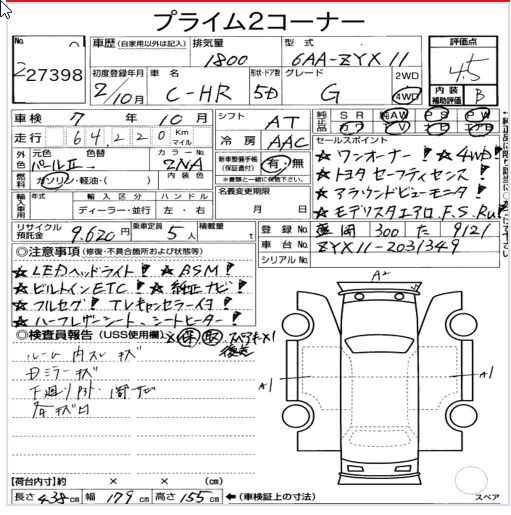 プライム2コーナー
No. 27398
車歴 (自家用以外は記入) 排気量 1800 型式 6AA-ZYX11
評価点 4.5
初度登録年月 2/10月 車名 C-HR 形状・ドア数 5D グレード G 2WD 4WD
内装補助評価 B
車検 7年 10月 シフト AT
純正品 SR 純AW PS PW
走行 64,220 Km マイル 冷房 AAC
セールスポイント
外色 元色 パールII 色替 カラーNo. ZNA
新車整備手帳(保証書付) 有・無
※書類と一緒に保管下さい。
★ワンオーナー! ★4WD!
★トヨタセーフティセンス!
燃料 ガソリン・軽油・( ) 内装色
名義変更期限 月 日
★アラウンドビューモニター!
★モデリスタエアロ F.S.Ru!
輸入車用 年式 輸入区分 ディーラー・並行 ハンドル 左・右
リサイクル預託金 9.620円 乗車定員 5人 積載量 t
登録No. 300 た 9121
車台No. ZYX11-2031349
シリアルNo.
◎注意事項(修復・不具合箇所および状態等)
★LEDヘッドライト! ★BSM!
★ビルトインETC! ★純正ナビ!
★フルセグ! TVキャンセラー付!
★ハーフレザーシート、シートヒーター!
◎検査員報告(USS使用欄) 保 取 スペアキー×1
ルーム内
A2
A1
A1
【荷台内寸】約 × × (cm)
長さ 438cm 幅 179cm 高さ 155cm ←(車検証上の寸法)
スペア